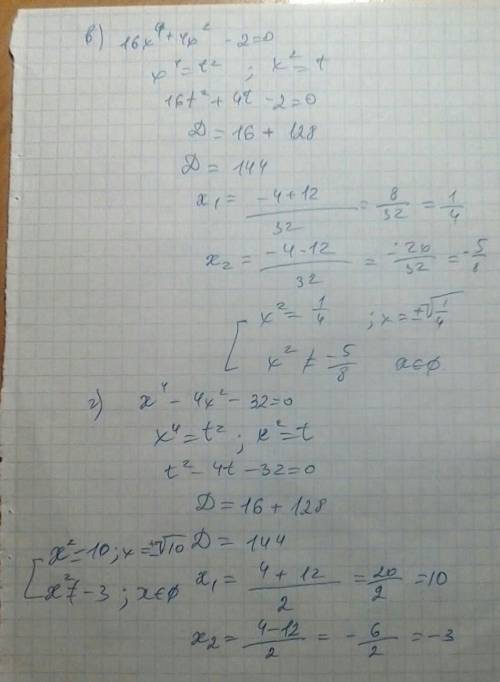 в) 16x⁴ + 4x² - 2 = 0
x⁴ = t² ; x² = t
16t² + 4t - 2 = 0
D = 16 + 128
D = 144
x₁ = (-4+12)/32 = 8/32 = 1/4
x₂ = (-4-12)/32 = -20/32 = -5/8
[ x² = 1/4 ; x = ±√(1/4)
x² ≠ -5/8 x∈∅
г) x⁴ - 4x² - 32 = 0
x⁴ = t² ; x² = t
t² - 4t - 32 = 0
D = 16 + 128
D = 144
x₁ = (4+12)/2 = 20/2 = 10
x₂ = (4-12)/2 = -6/2 = -3
[ x² = 10 ; x = ±√10
x² ≠ -3 ; x∈∅